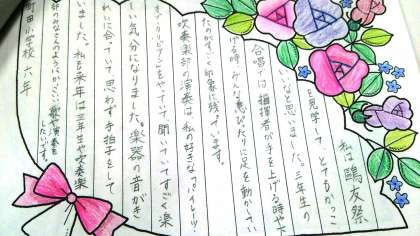 私は鷗友祭
を見学して、とてもかっこ
いいなと思いました。三年生の
合唱では指揮者が手を上げる時や下
げる時、みんな息ぴったりに足を動かしてい
たのがすごく印象に残っています。
吹奏楽部の演奏は、私の好きなパイレーツ
オブカリビアンをやっていて聞いていてすごく楽
しい気分になりました。楽器の音がき
れいに合ってて思わず手拍子をして
いました。私も来年は三年生や吹奏楽
部のみなさんのようにかっこいい歌や演奏をしたいです。
町田小学校 六年